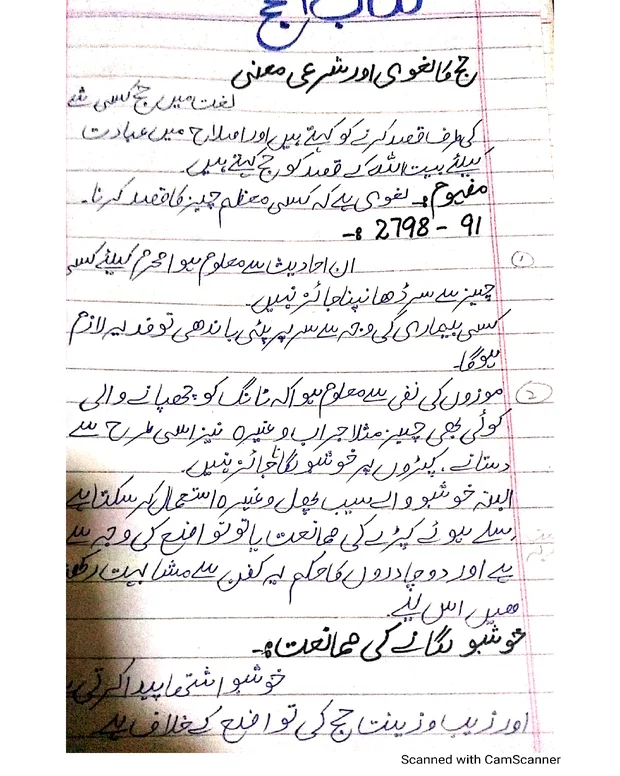 کتاب الحج
حج کا لغوی اور شرعی معنی
لغت میں حج کسی شے
کی طرف قصد کرنے کو کہتے ہیں اور اصلاح میں عبادت
کیلئے بیت اللہ کے قصد کو حج کہتے ہیں۔
مفہوم:۔ لغوی ہے کہ کسی معظم چیز کا قصد کرنا۔
2798 - 91 :-
① ان احادیث سے معلوم ہوا محرم کیلئے کسی
چیز سے سر ڈھانپنا جائز نہیں۔
کسی بیماری کی وجہ سے سر پر پٹی باندھی تو فدیہ لازم
ہوگا۔
② موزوں کی نفی سے معلوم ہوا کہ ٹانگ کو چھپانے والی
کوئی بھی چیز مثلا جراب وغیرہ نیز اسی طرح سے
دستانے، کپڑوں پر خوشبو لگانا جائز نہیں۔
البتہ خوشبو والے سیب پھول وغیرہ استعمال کر سکتا ہے
سلے ہوئے کپڑے کی ممانعت یا تو تواضع کی وجہ سے
ہے اور دو چادروں کا حکم یہ کفن سے مشابہت رکھتی
ھیں اس لیے۔
خوشبو لگانے کی ممانعت:۔
خوشبو اشتہا پیدا کرتی ہے
اور زیب و زینت حج کی تواضع کے خلاف ہے
Scanned with CamScanner